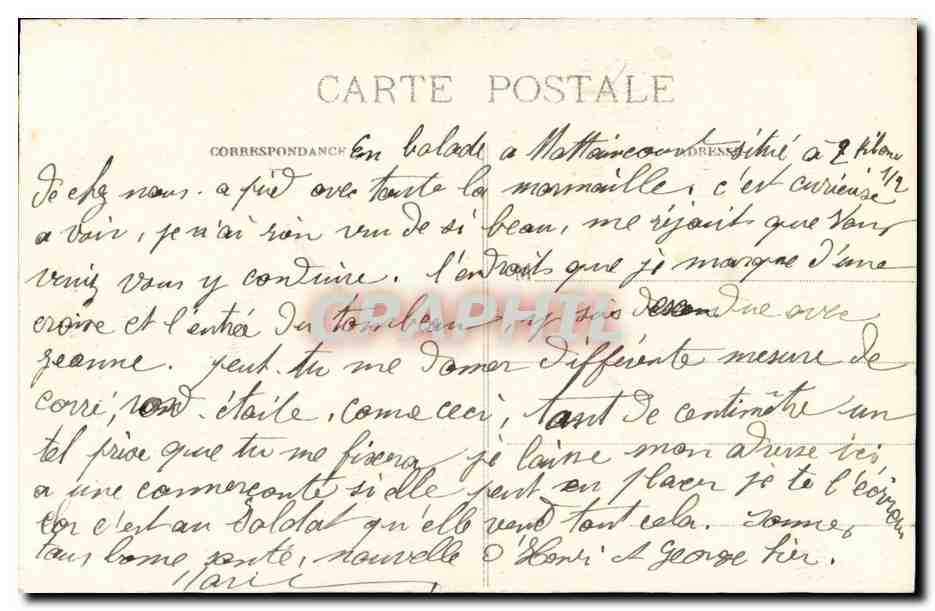 CARTE POSTALE
CORRESPONDANCE ADRESSE
En balade a Mattaincourt situé a 2 kilom 1/2
de chez nous. a pied avec toute la marmaille. c'est curieuse
a voir, je n'ai rien vu de si beau, me réjouits que vous
veniz vous y conduire. l'endroits que je marque d'une
croix et l'entrée du tombeau, y suis descendue avec
Jeanne. peut-tu me donner différente mesure de
carré, rond. étoile. come ceci, tant de centimètre un
tel prix que tu me fixera, je laisse mon adresse ici
a une commerçante si elle peut en placer je te l'écirai
car c'est au Soldat qu'elle vend tout cela. sommes
tous bonne santé, nouvelle d'Henri et George hier.
Marie
CPAPHIL